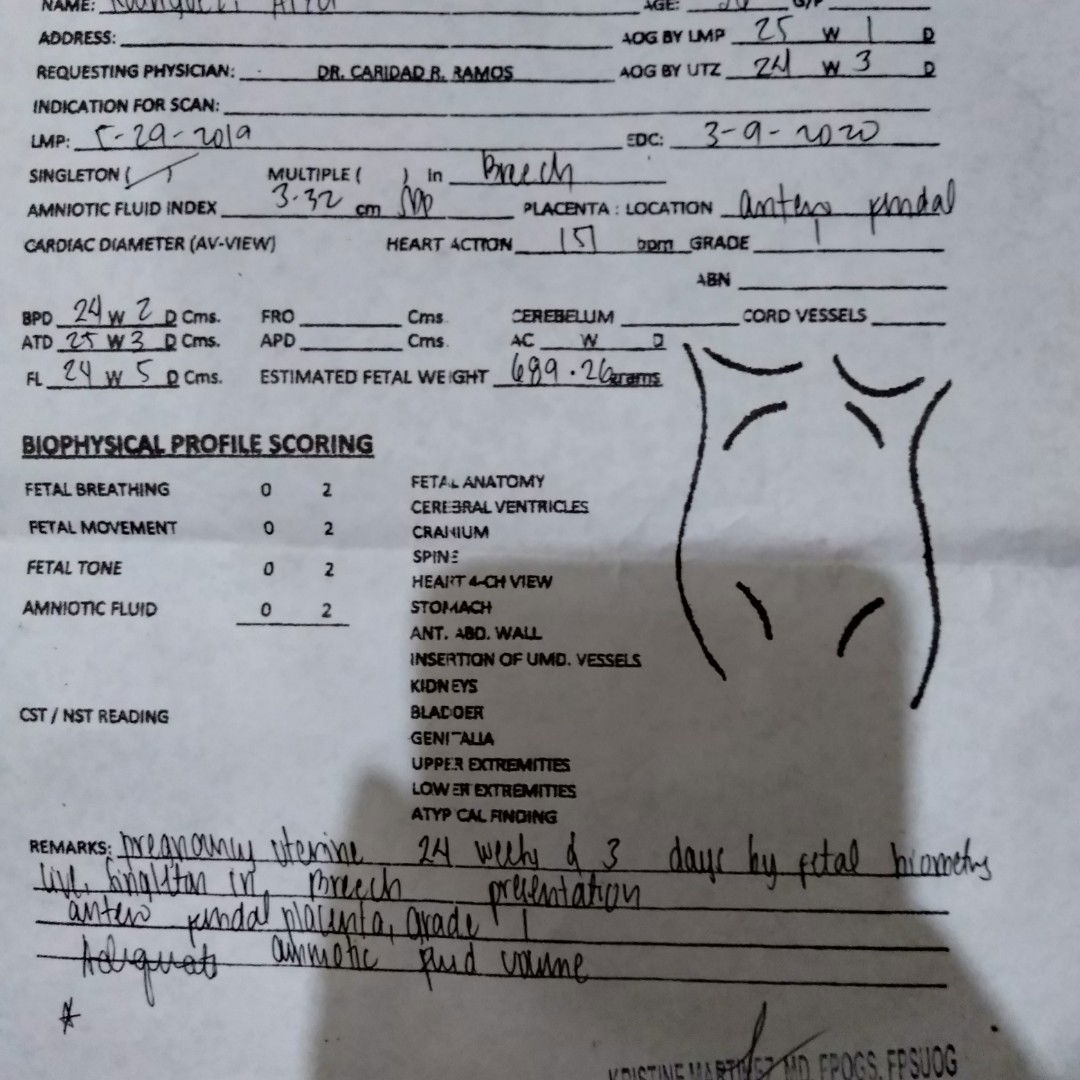 NAME: AGE: G/P
ADDRESS: AOG BY LMP 25 W 1 D
REQUESTING PHYSICIAN: DR. CARIDAD R. RAMOS AOG BY UTZ 24 W 3 D
INDICATION FOR SCAN:
LMP: 5-29-2019 EDC: 3-9-2020
SINGLETON ( / ) MULTIPLE ( ) in Breech
AMNIOTIC FLUID INDEX 3.32 cm SDP PLACENTA : LOCATION antero fundal
CARDIAC DIAMETER (AV-VIEW) HEART ACTION 151 bpm GRADE 1
ABN
BPD 24 W 2 D Cms. FRO Cms. CEREBELUM CORD VESSELS
ATD 25 W 3 D Cms. APD Cms. AC W D
FL 24 W 5 D Cms. ESTIMATED FETAL WEIGHT 689.26 grams
BIOPHYSICAL PROFILE SCORING
FETAL BREATHING 0 2
FETAL MOVEMENT 0 2
FETAL TONE 0 2
AMNIOTIC FLUID 0 2
CST / NST READING
FETAL ANATOMY
CEREBRAL VENTRICLES
CRANIUM
SPINE
HEART 4-CH VIEW
STOMACH
ANT. ABD. WALL
INSERTION OF UMD. VESSELS
KIDNEYS
BLADDER
GENITALIA
UPPER EXTREMITIES
LOWER EXTREMITIES
ATYPICAL FINDING
REMARKS: pregnancy uterine 24 weeks & 3 days by fetal biometry
live, singleton in breech presentation
antero fundal placenta, grade 1
Adequate amniotic fluid volume
KRISTINE MARTINEZ MD, FPOGS, FPSUOG